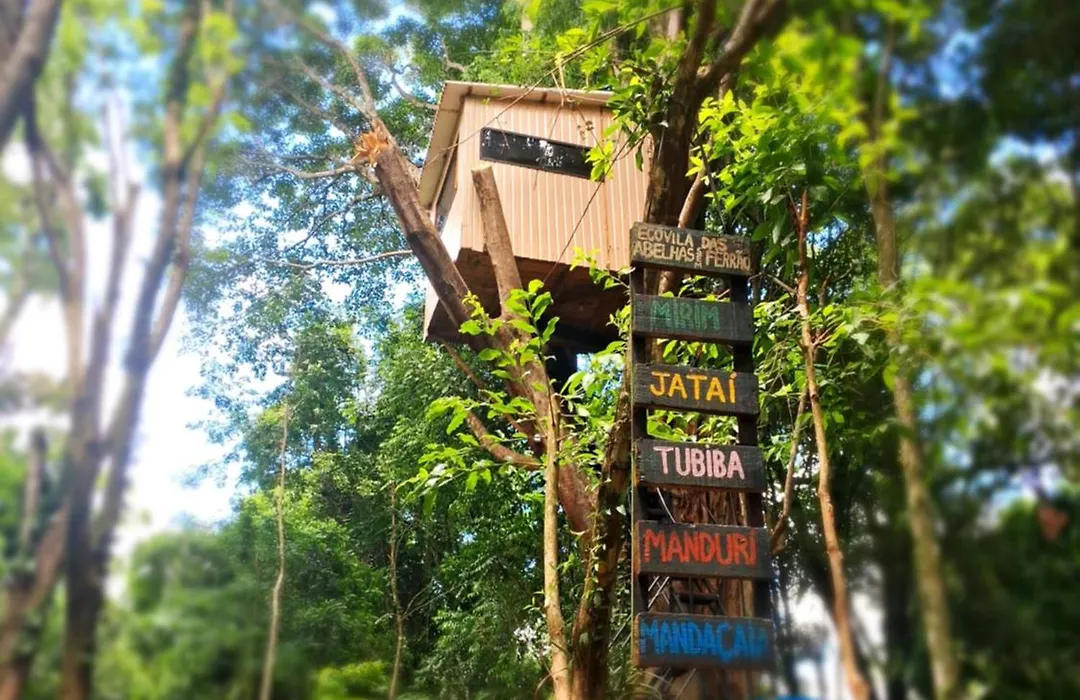 ECOVILA DAS
ABELHAS SEM FERRÃO
MIRIM
JATAÍ
TUBIBA
MANDURI
MANDAÇAIA